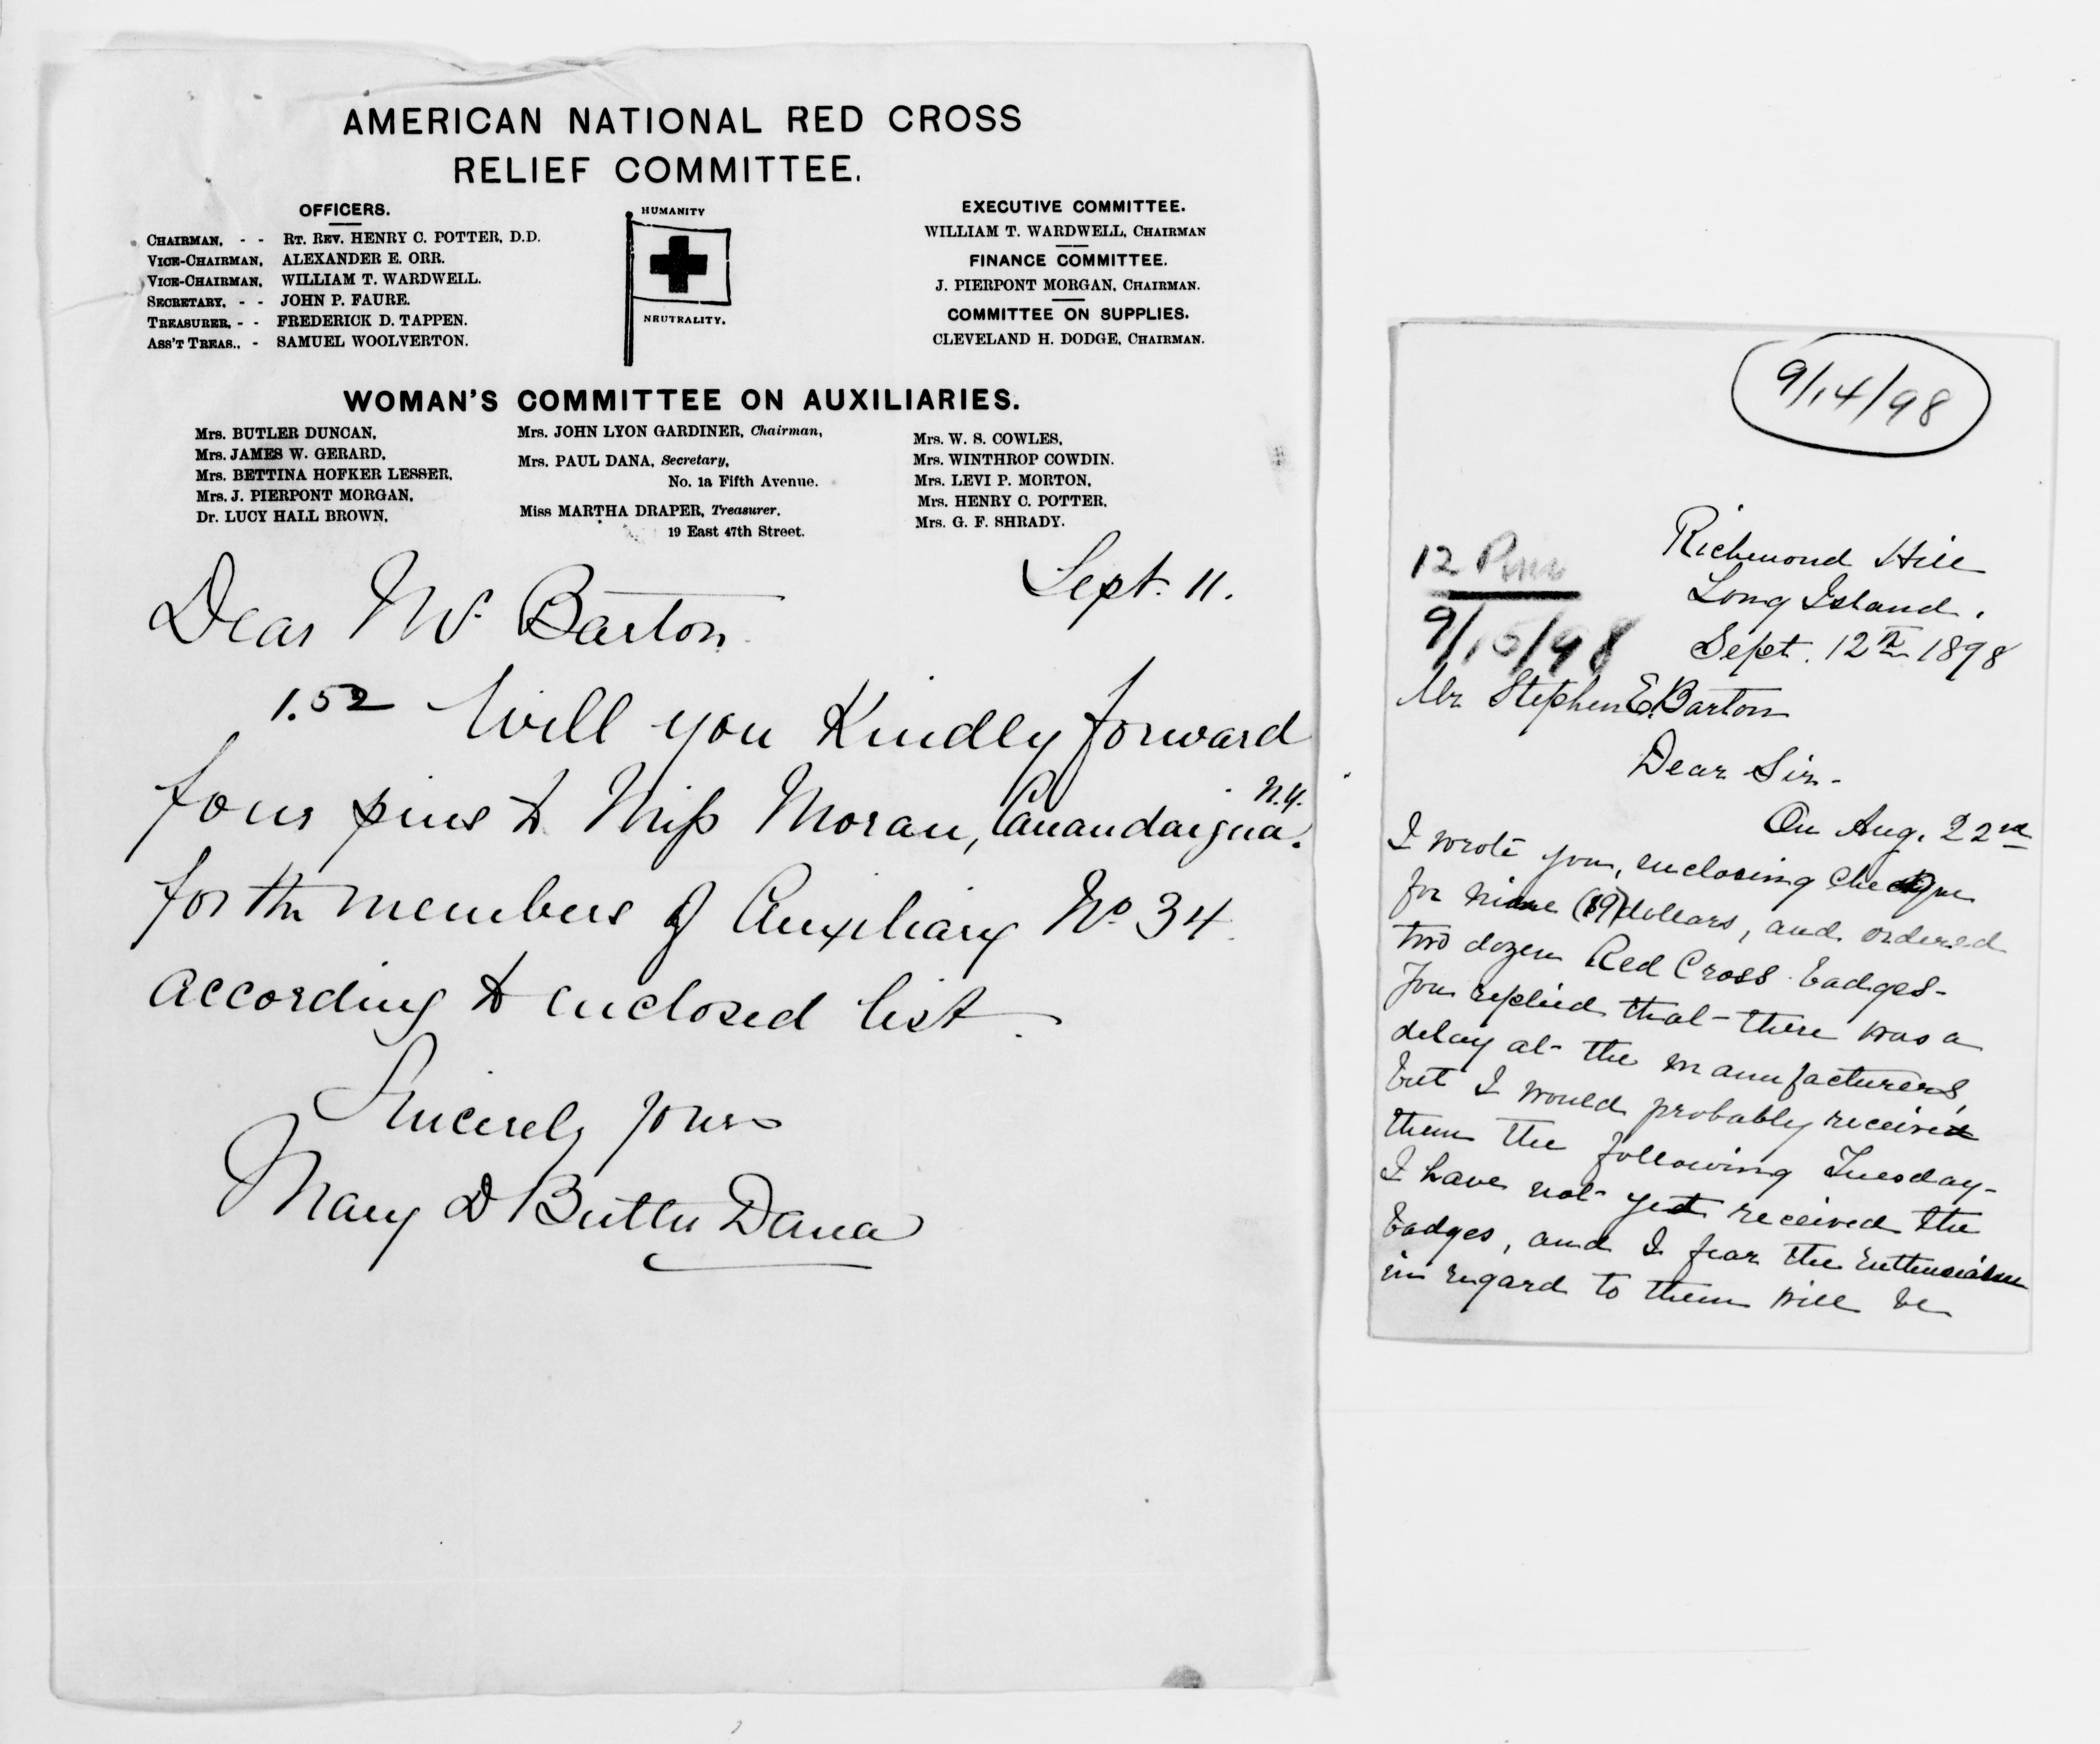 AMERICAN NATIONAL RED CROSS
RELIEF COMMITTEE.
OFFICERS.
CHAIRMAN, - - RT. REV. HENRY C. POTTER, D.D.
VICE-CHAIRMAN, ALEXANDER E. ORR.
VICE-CHAIRMAN, WILLIAM T. WARDWELL.
SECRETARY, - - JOHN P. FAURE.
TREASURER, - - FREDERICK D. TAPPEN.
ASS'T TREAS., - SAMUEL WOOLVERTON.
HUMANITY
NEUTRALITY.
EXECUTIVE COMMITTEE.
WILLIAM T. WARDWELL, CHAIRMAN
FINANCE COMMITTEE.
J. PIERPONT MORGAN, CHAIRMAN.
COMMITTEE ON SUPPLIES.
CLEVELAND H. DODGE, CHAIRMAN.
WOMAN'S COMMITTEE ON AUXILIARIES.
Mrs. BUTLER DUNCAN,
Mrs. JAMES W. GERARD,
Mrs. BETTINA HOFKER LESSER,
Mrs. J. PIERPONT MORGAN,
Dr. LUCY HALL BROWN,
Mrs. JOHN LYON GARDINER, Chairman,
Mrs. PAUL DANA, Secretary,
No. 1a Fifth Avenue.
Miss MARTHA DRAPER, Treasurer,
19 East 47th Street.
Mrs. W. S. COWLES,
Mrs. WINTHROP COWDIN.
Mrs. LEVI P. MORTON,
Mrs. HENRY C. POTTER,
Mrs. G. F. SHRADY.
Sept. 11.
Dear Mr. Barton
1.52 Will you Kindly forward
four pins to Miss Moran, Canandaigua. N.Y.
for the members of Auxiliary No 34
according to enclosed list.
Sincerely yours
Mary D Butler Dana
9/14/98
12 Pins
9/15/98
Richmond Hill
Long Island.
Sept. 12th 1898
Mr Stephen E. Barton
Dear Sir-
On Aug. 22nd
I wrote you, enclosing cheque
for nine ($9) dollars, and ordered
two dozen Red Cross badges-
You replied that there was a
delay at the manufacturers,
but I would probably receive
them the following Tuesday-
I have not yet received the
badges, and I fear the enthusiasm
in regard to them will be